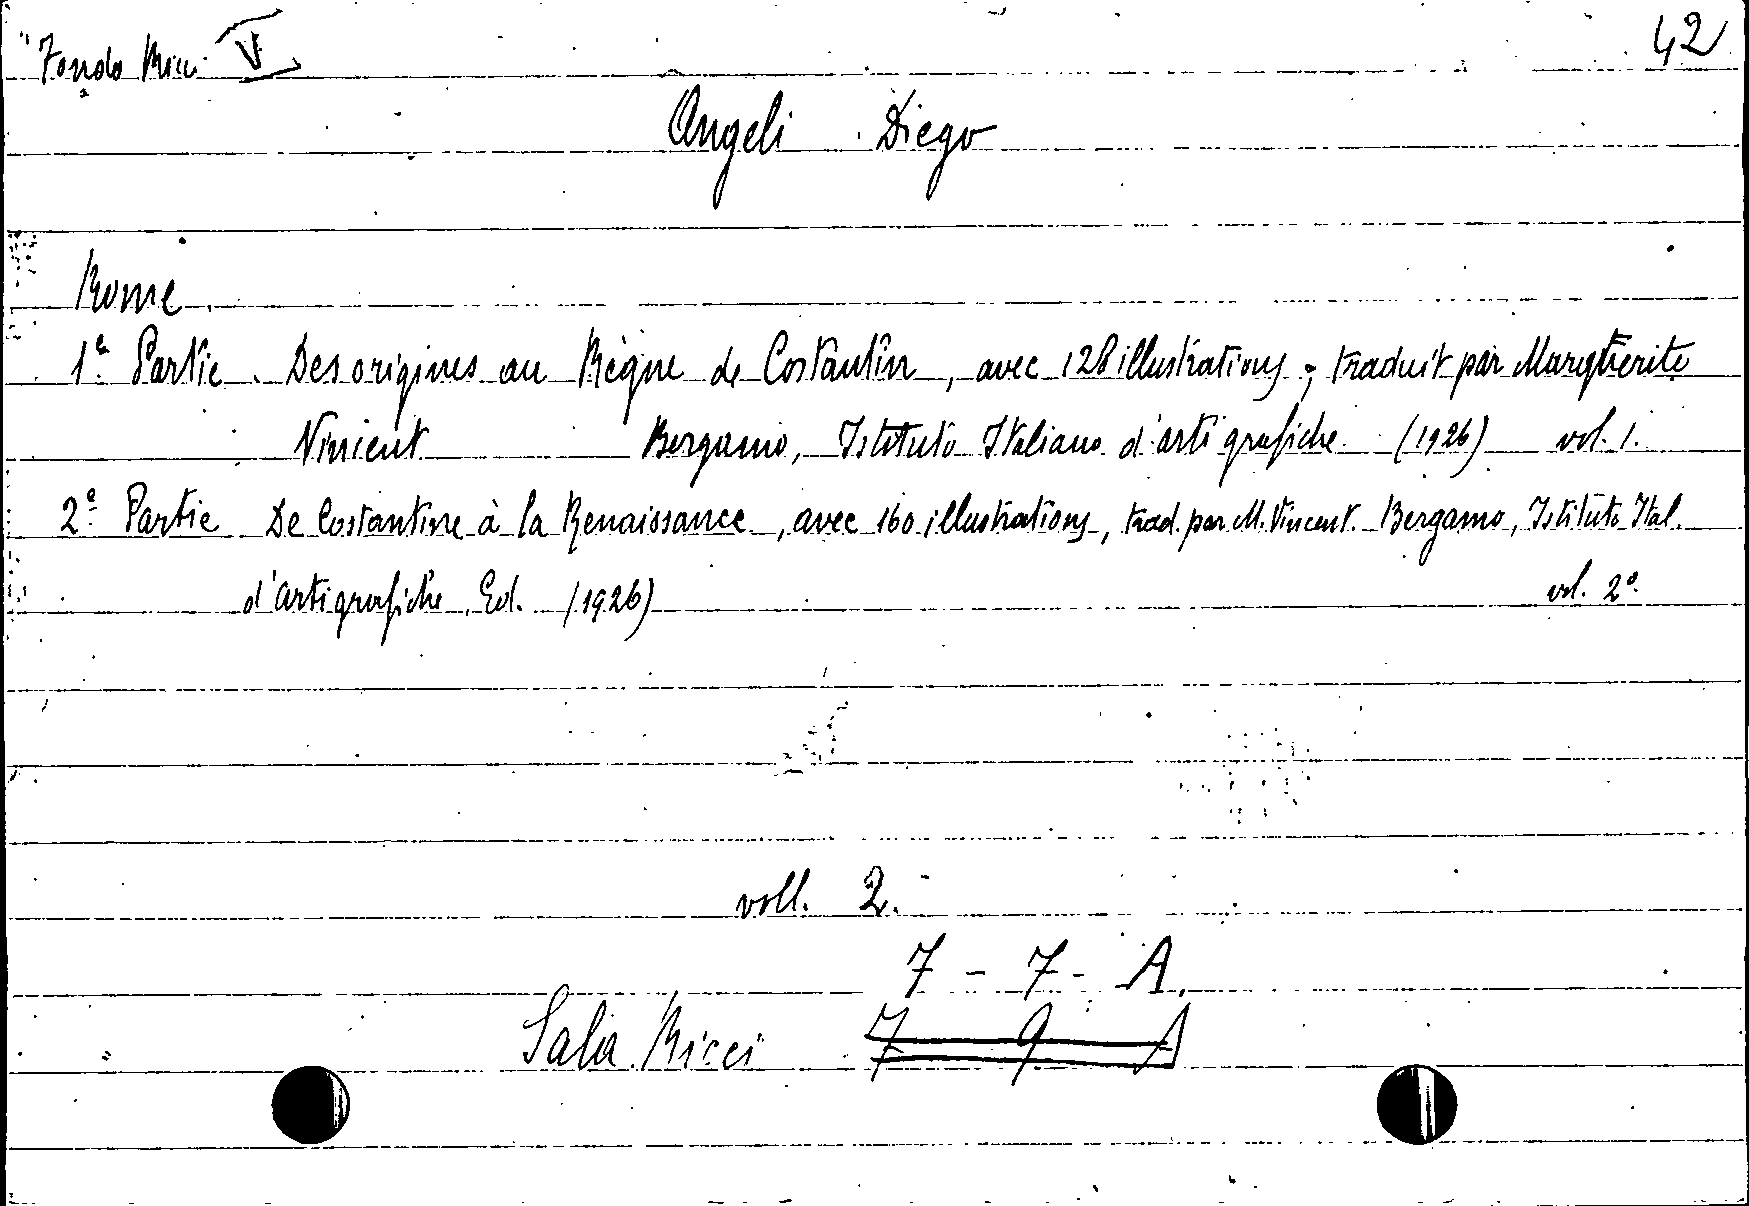 "Fondo Ricci V
42
Angeli Diego
Rome.
1ª Partie. Des origines au Règne de Costantin, avec 128 illustrations; traduit par Margherite
Vincent Bergamo, Istituto Italiano d'arti grafiche (1926) vol. 1.
2ª Partie De Costantine à la Renaissance, avec 160 illustrations, trad. par M. Vincent. Bergamo, Istituto Ital.
d'arti grafiche, Ed. (1926) vol. 2º
voll. 2.
7 - 7 - A.
Sala Ricci 7 9 A